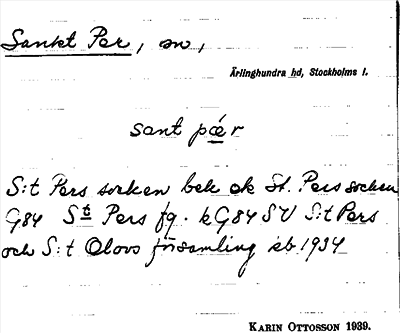 Sankt Per, sn,
Ärlinghundra hd, Stockholms l.
sant pǽr
S:t Pers socken bek ek St. Pers socken
G84 St Pers fg. kG84 SV S:t Pers
och S:t Olovs församling eb 1934
KARIN OTTOSSON 1939.